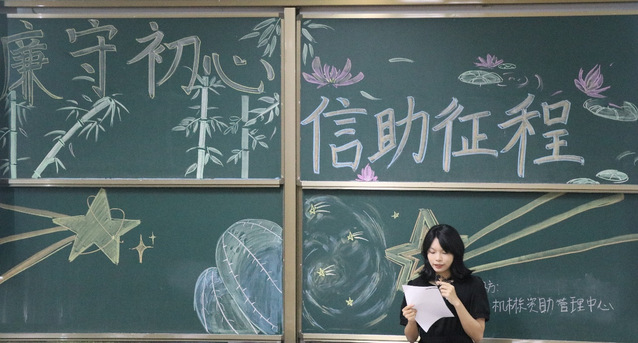 廉守初心
信助征程
方:
机械资助管理中心